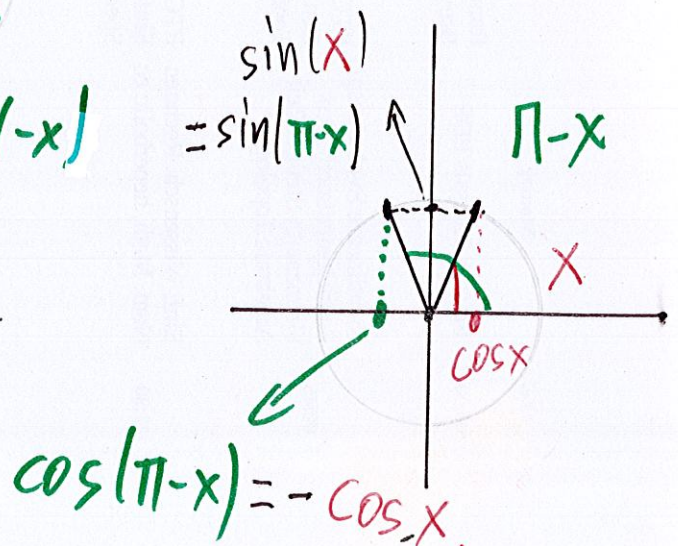 sin(x)
-x) =sin(π-x) π-x
x
cosx
cos(π-x)=-cosx